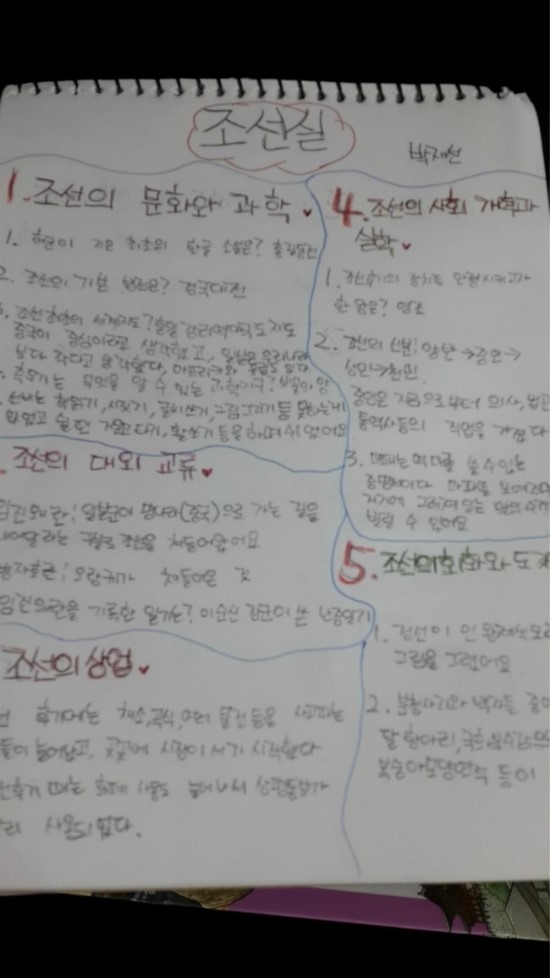 조선실
박재선
1. 조선의 문화와 과학
1. 허균이 지은 최초의 한글 소설은? 홍길동전
2. 조선의 기본 법전은? 경국대전
조선 초기의 세계지도? 혼일강리역대국도지도
중국이 중심이라고 생각했고, 일본은 우리나라
보다 작다고 생각했다. 아프리카와 유럽도 있다
측우기는 무엇을 알 수 있는 과학기구? 비의 양
선비는 책읽기, 시짓기, 글씨쓰기, 그림그리기 등
활쏘기 등을 하며 쉬었어요
조선의 대외 교류
임진왜란: 일본군이 명나라(중국)으로 가는 길을
내어달라는 구실로 전쟁을 쳐들어왔어요
병자호란: 오랑캐가 쳐들어온 것
임진왜란을 기록한 일기는? 이순신 장군이 쓴 난중일기
조선의 상업
후기에는 채소, 곡식, 여러 물건 등을 사고파는
들이 늘어났고, 곳곳에 시장이 서기 시작했다
후기 때는 화폐 사용도 늘어나서 상평통보가
사용되었다.
4. 조선의 사회 개혁과
실학
1. 조선후기의 정치를 안정시키고자
한 왕은? 영조
2. 조선의 신분: 양반→중인→
상민→천민
중인은 지금으로부터 의사, 법관
통역사 등의 직업을 가졌다
3. 마패는 역마를 쓸 수 있는
증명서이다 마패를 보여주면
거기에 그려져 있는 말의 수
빌릴 수 있어요
5. 조선의 회화와 도자
1. 정선이 인왕제색도라
그림을 그렸어요
2. 분청사기와 백자들 중
달항아리, 국화
복숭아모양연적 등이